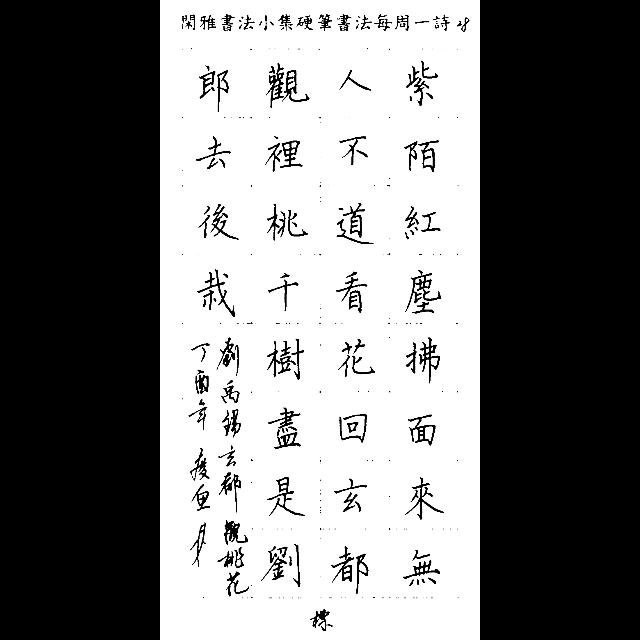 閑雅書法小集硬筆書法每周一詩28
紫陌紅塵拂面來無
人不道看花回玄都
觀裡桃千樹盡是劉
郎去後栽
劉禹錫玄都觀桃花
丁酉年